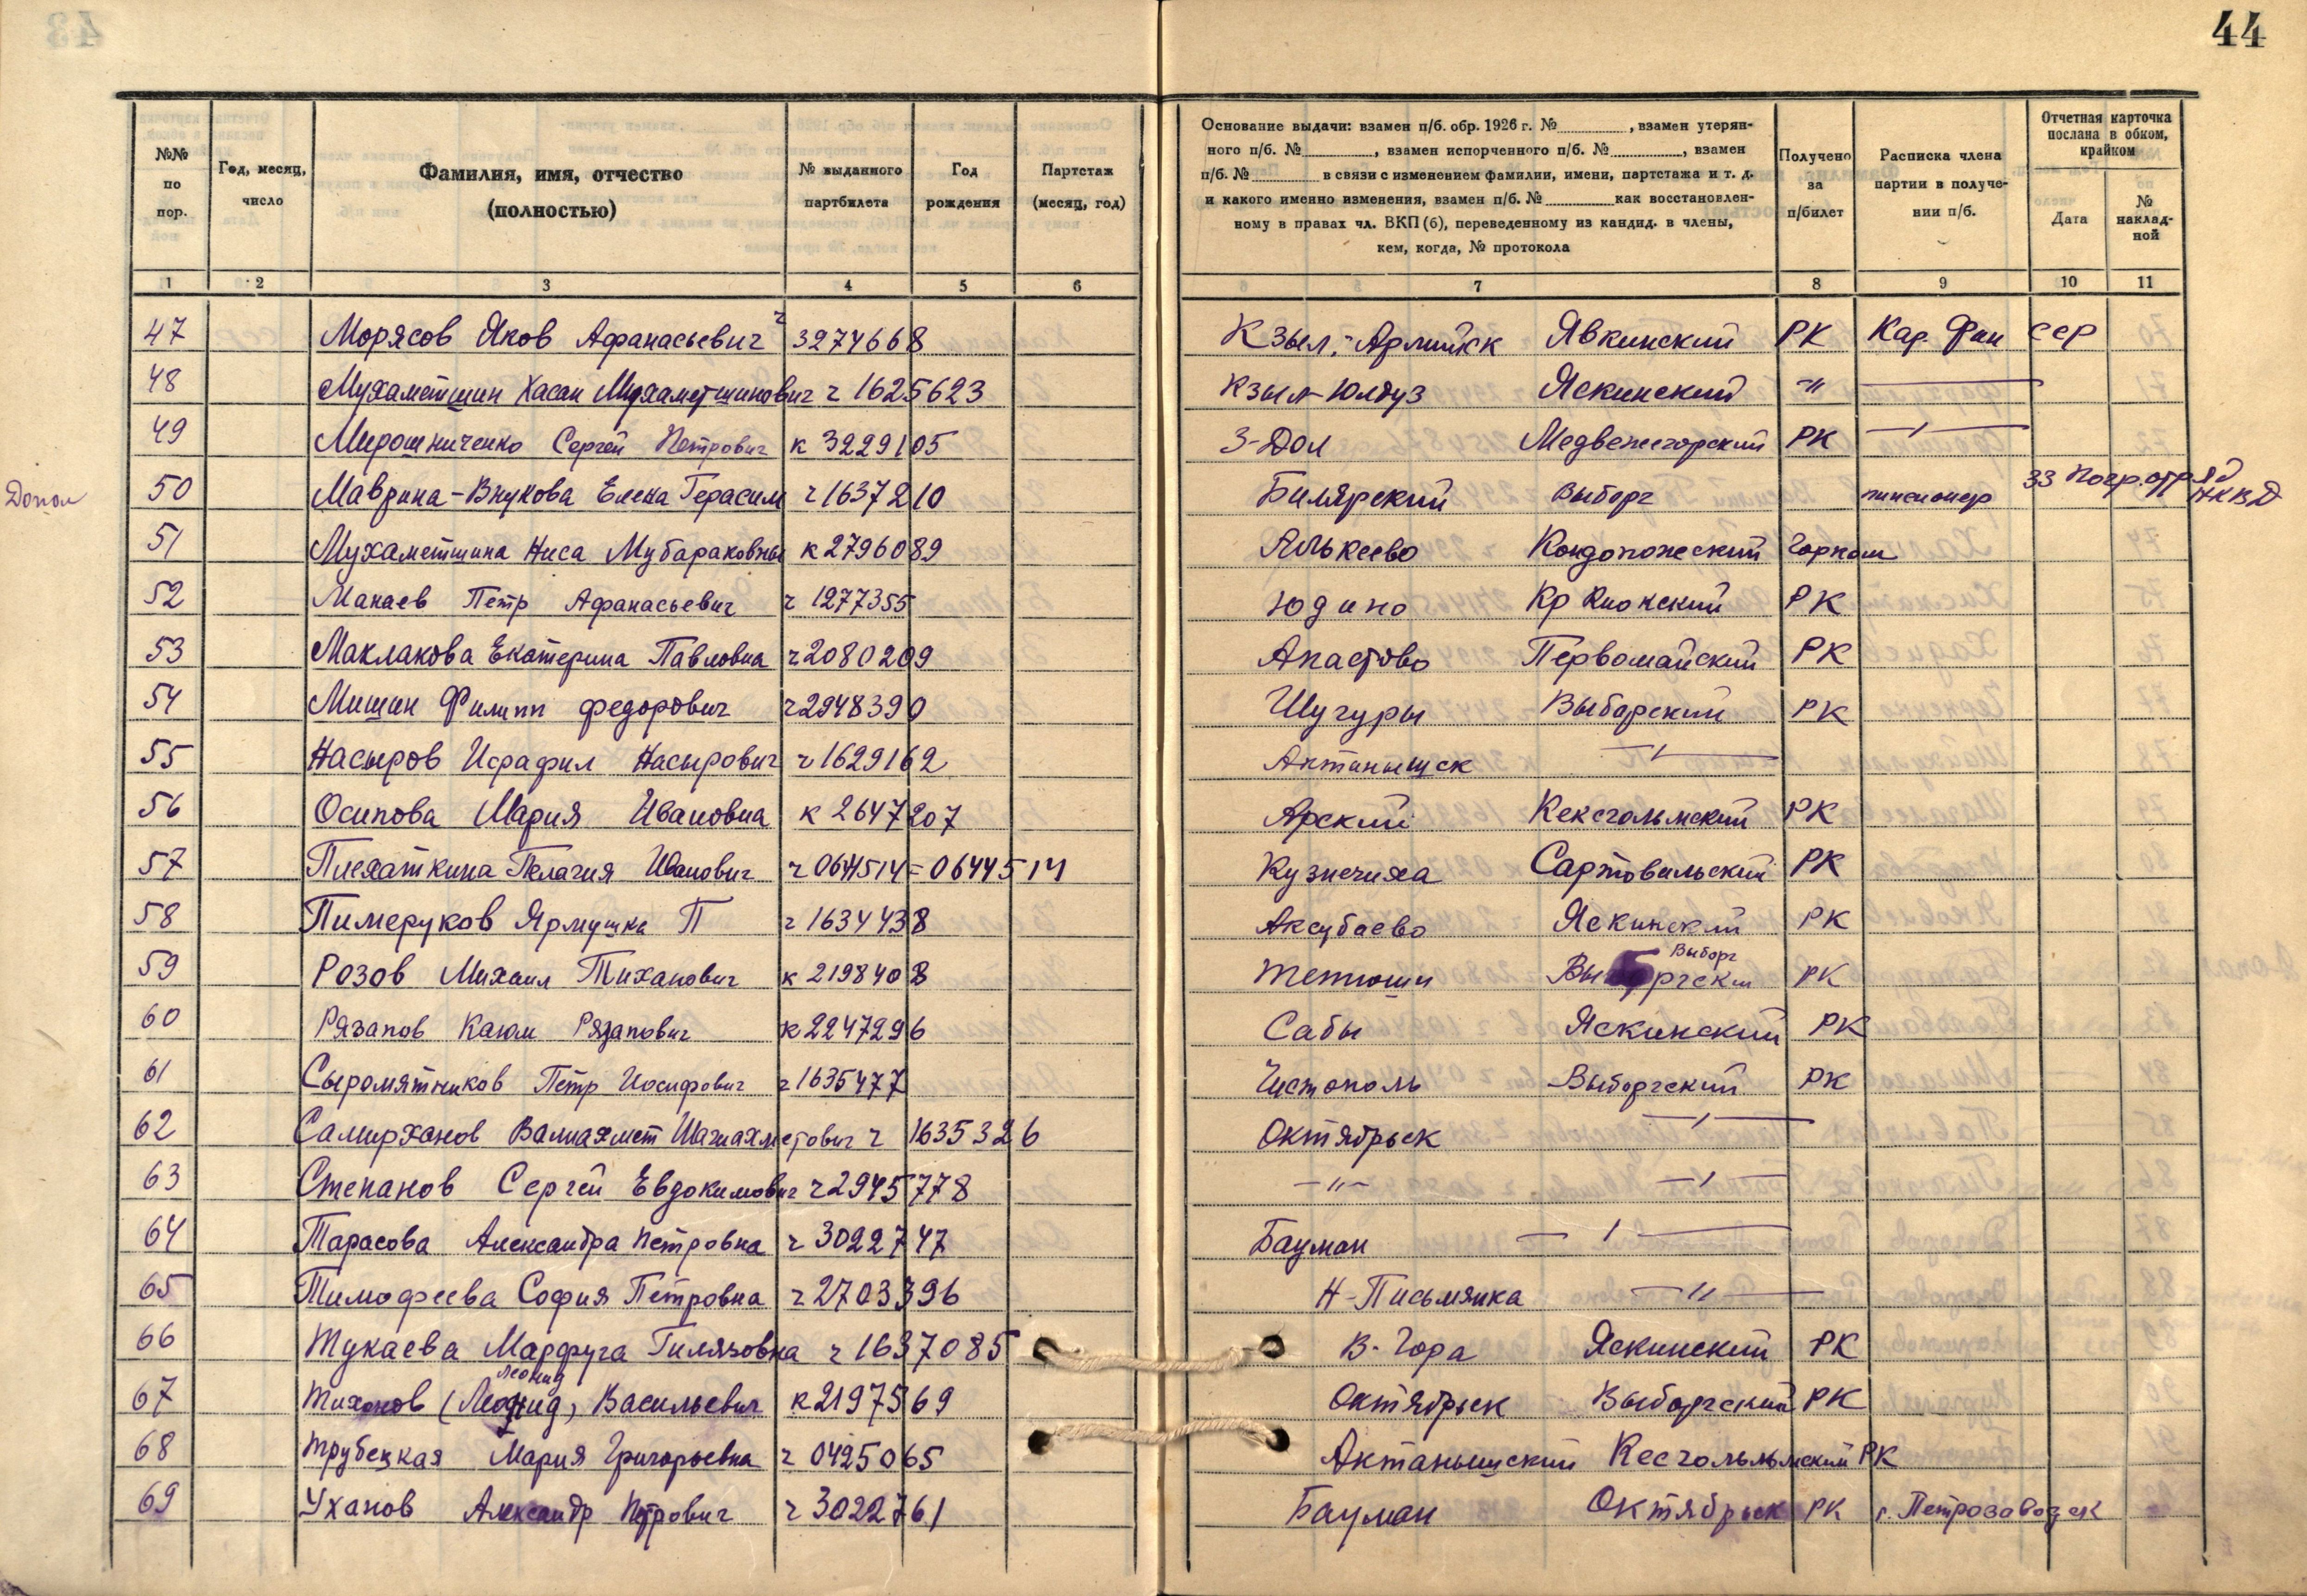 43
44
№№ по пор.
Год, месяц, число
Фамилия, имя, отчество (полностью)
№ выданного партбилета
Год рождения
Партстаж (месяц, год)
Основание выдачи: взамен п/б. обр. 1926 г. № , взамен утерян-
ного п/б. № , взамен испорченного п/б. № , взамен
п/б. № в связи с изменением фамилии, имени, партстажа и т. д.
и какого именно изменения, взамен п/б. № как восстановлен-
ному в правах чл. ВКП(б), переведенному из кандид. в члены,
кем, когда, № протокола
Получено за п/билет
Расписка члена партии в получе- нии п/б.
Отчетная карточка послана в обком, крайком
Дата
№ наклад- ной
1 2 3 4 5 6 7 8 9 10 11
47 Морясов Яков Афанасьевич ч 3274668 Кзыл-Армийск Явкинский РК Кар. Фин ССР
48 Мухаметшин Хасан Мухаметшинович ч 1625623 Кзыл-Юлдуз Яскинский "
49 Мирошниченко Сергей Петрович к 3229105 З-Дол Медвежегорский РК
Допол 50 Маврина-Внукова Елена Герасим ч 1637210 Билярский Выборг пинсионер 33 Погр. отряд НКВД
51 Мухаметшина Ниса Мубараковны к 2796089 Алькеево Кондопожский Горком
52 Манаев Петр Афанасьевич ч 1277355 Юдино Кр РК
53 Маклакова Екатерина Павловна ч 2080209 Апастово Первомайский РК
54 Мишин Филипп Федорович ч 2948390 Шугуры Выборский РК
55 Насыров Исрафил Насырович ч 1629162 Актанышск — " —
56 Осипова Мария Ивановна к 2647207 Арский Кексгольмский РК
57 Плехаткина Пелагия Иванович ч 0644514 = 0644514 Кузнечиха Сартовальский РК
58 Пимеруков Ярмушка П ч 1634438 Аксубаево Яскинский РК
59 Розов Михаил Тиханович к 2198408 Тетюши Выборгски Выборг РК
60 Рязапов Каюм Рязапович к 2247296 Сабы Яскинский РК
61 Сыромятников Петр Иосифович ч 1635477 Чистополь Выборгский РК
62 Самирханов Валиахмет Шагиахметович ч 1635326 Октябрьск — " —
63 Степанов Сергей Евдокимович ч 2945778 — " — — " —
64 Тарасова Александра Петровна ч 3022747 Бауман — " —
65 Тимофеева София Петровна ч 2703396 Н-Письмянка — " —
66 Тукаева Марфуга Гилязовна ч 1637085 В-Гора Яскинский РК
67 Тихонов (Леонид) Леонид Васильевич к 2197569 Октябрьск Выборгский РК
68 Трубецкая Мария Григорьевна ч 0425065 Актанышский Кесгольмский РК
69 Уханов Александр Петрович ч 3022761 Бауман Октябрьск РК г. Петрозаводск